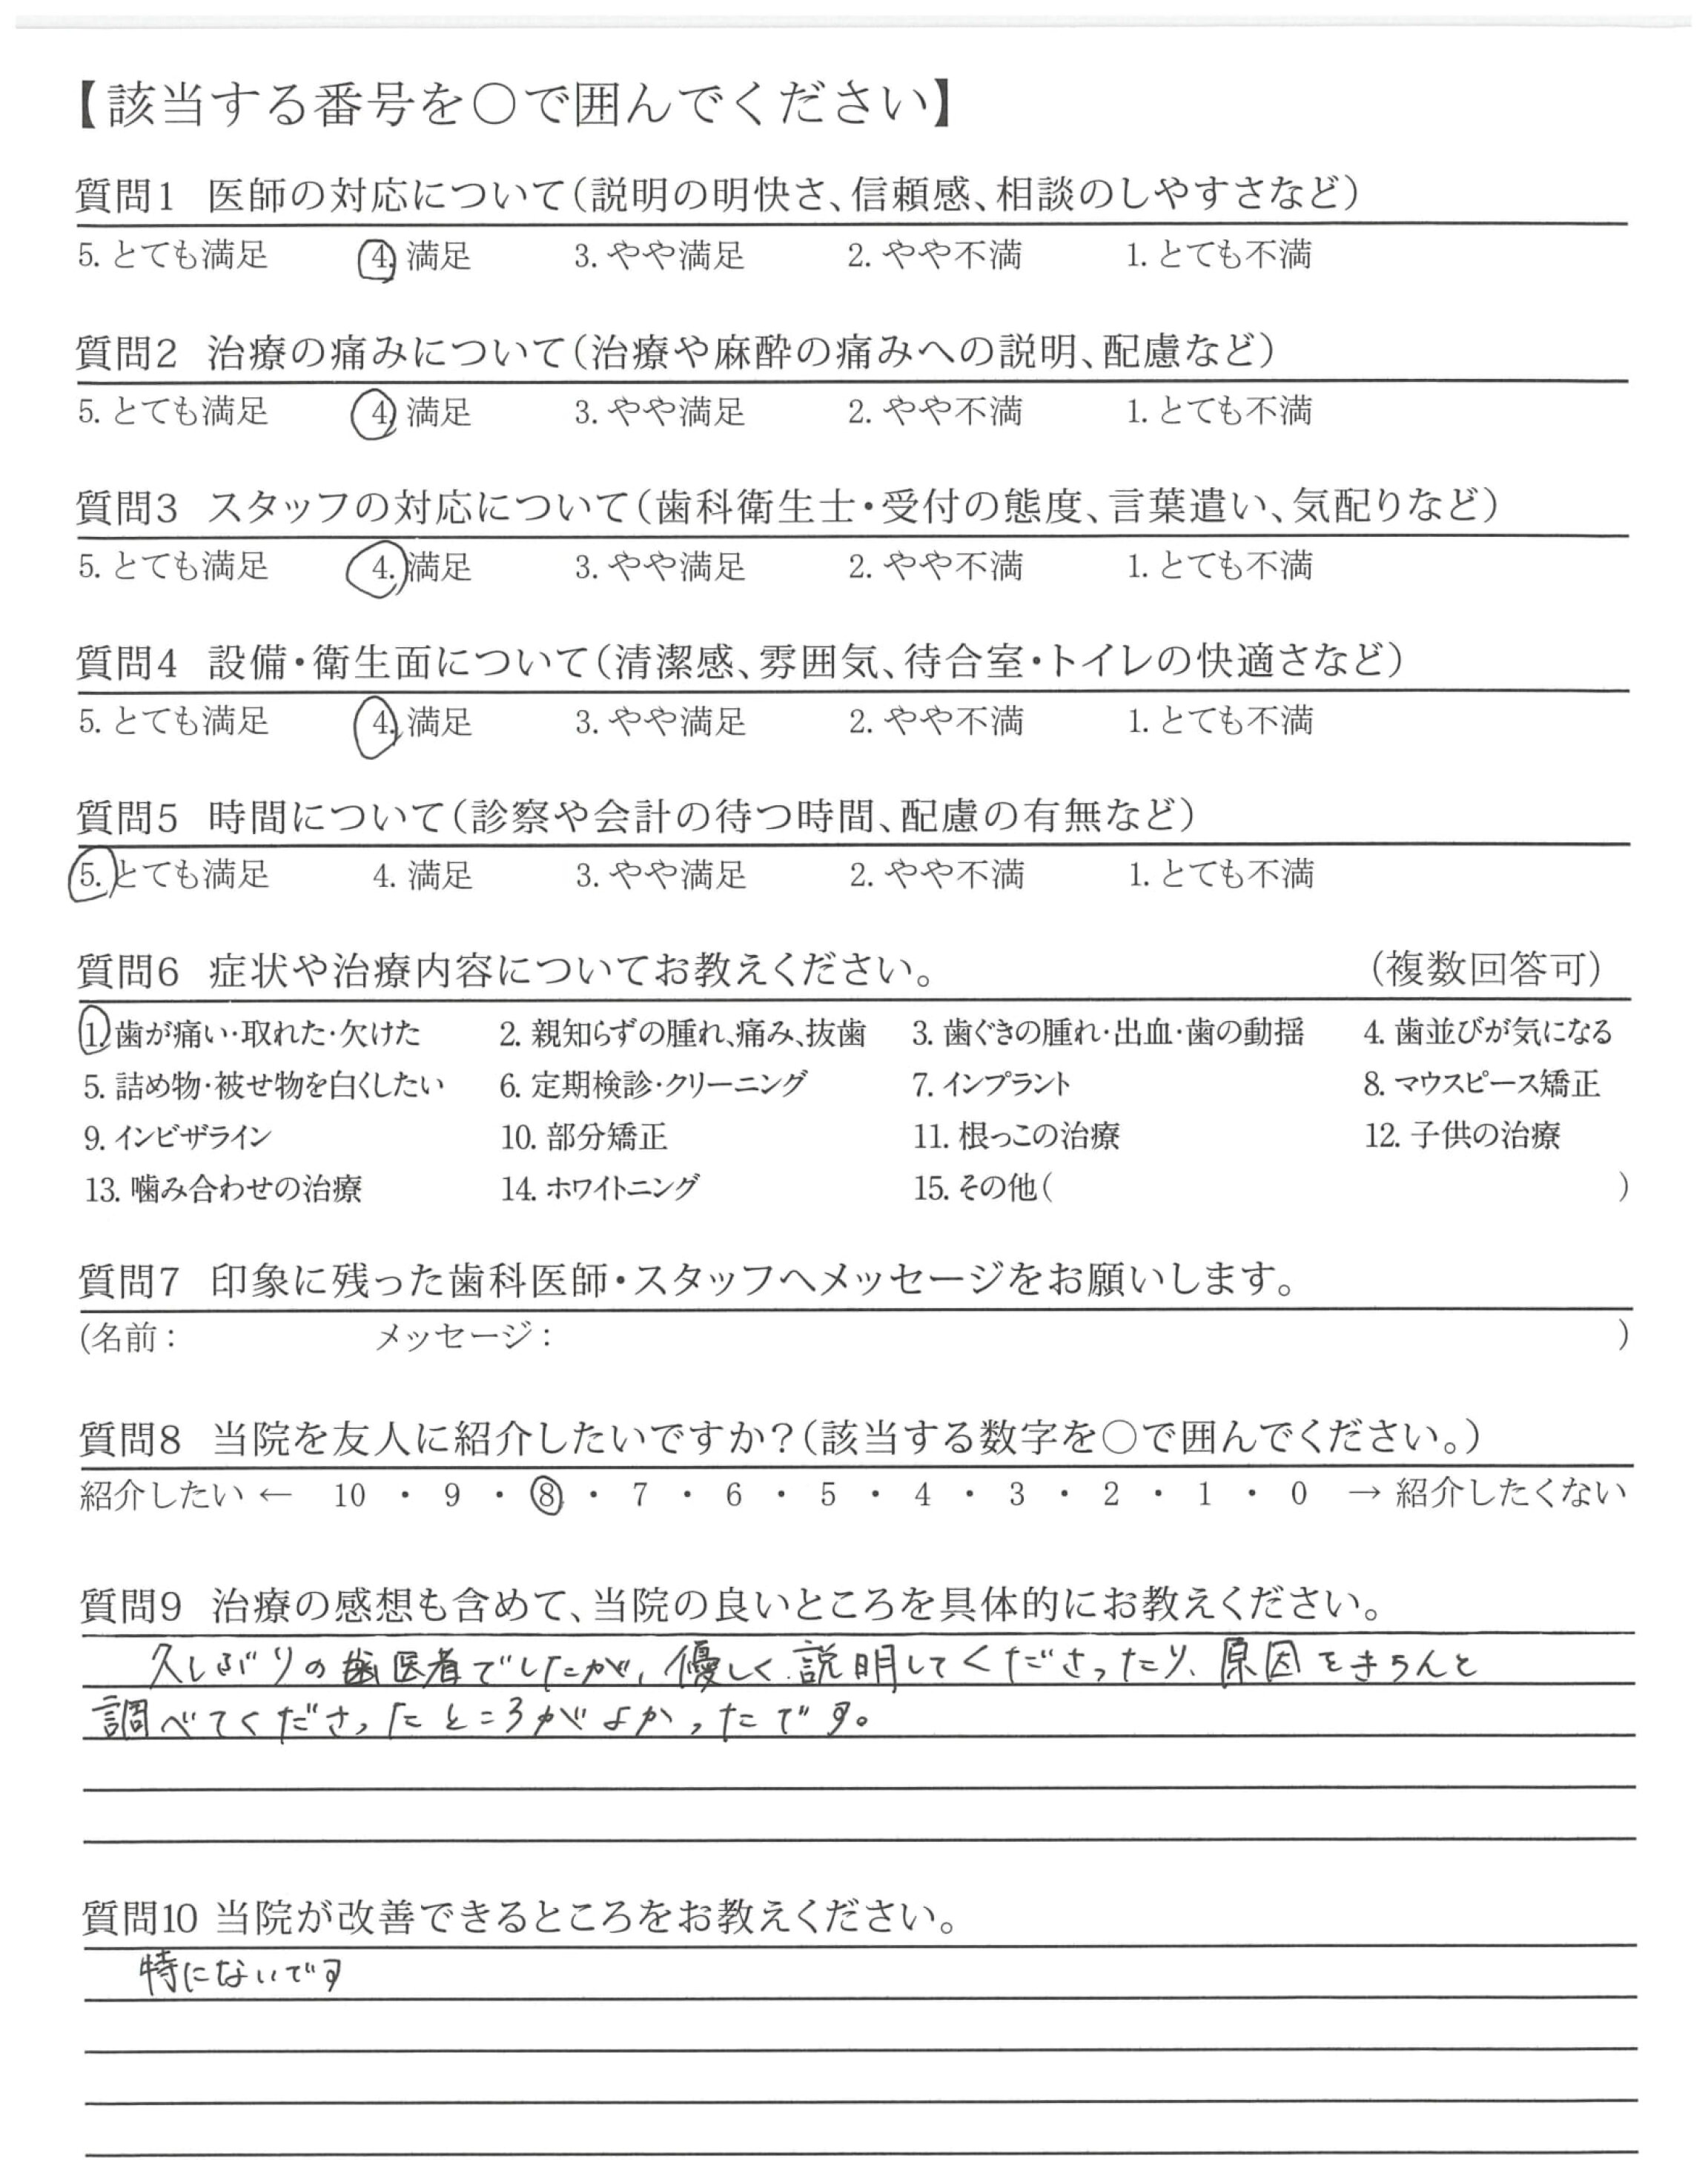 【該当する番号を○で囲んでください】
質問1 医師の対応について（説明の明快さ、信頼感、相談のしやすさなど）
5. とても満足 4. 満足 3. やや満足 2. やや不満 1. とても不満
質問2 治療の痛みについて（治療や麻酔の痛みへの説明、配慮など）
5. とても満足 4. 満足 3. やや満足 2. やや不満 1. とても不満
質問3 スタッフの対応について（歯科衛生士・受付の態度、言葉遣い、気配りなど）
5. とても満足 4. 満足 3. やや満足 2. やや不満 1. とても不満
質問4 設備・衛生面について（清潔感、雰囲気、待合室・トイレの快適さなど）
5. とても満足 4. 満足 3. やや満足 2. やや不満 1. とても不満
質問5 時間について（診察や会計の待つ時間、配慮の有無など）
5. とても満足 4. 満足 3. やや満足 2. やや不満 1. とても不満
質問6 症状や治療内容についてお教えください。 （複数回答可）
1. 歯が痛い・取れた・欠けた 2. 親知らずの腫れ、痛み、抜歯 3. 歯ぐきの腫れ・出血・歯の動揺 4. 歯並びが気になる
5. 詰め物・被せ物を白くしたい 6. 定期検診・クリーニング 7. インプラント 8. マウスピース矯正
9. インビザライン 10. 部分矯正 11. 根っこの治療 12. 子供の治療
13. 噛み合わせの治療 14. ホワイトニング 15. その他（ ）
質問7 印象に残った歯科医師・スタッフへメッセージをお願いします。
(名前： メッセージ： )
質問8 当院を友人に紹介したいですか？（該当する数字を○で囲んでください。）
紹介したい ← 10 ・ 9 ・ 8 ・ 7 ・ 6 ・ 5 ・ 4 ・ 3 ・ 2 ・ 1 ・ 0 → 紹介したくない
質問9 治療の感想も含めて、当院の良いところを具体的にお教えください。
久しぶりの歯医者でしたが、優しく説明してくださったり、原因をきちんと
調べてくださったところがよかったです。
質問10 当院が改善できるところをお教えください。
特にないです